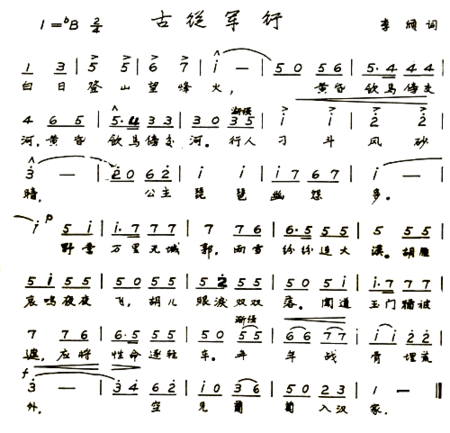 1=♭B 2/4 古從军行 李颀词
1 3 | 5 5 | 6 7 | i — | 5 0 5 6 | 5· 4 4 4 |
白日登山望烽火，黄昏饮马傍交
4 6 5 | 5· 4 3 3 | 3 0 3 5 | i i | 2 2 |
河，黄昏饮马傍交河。行人刁斗风砂
3 — | 2 0 6 2 | i i | i 7 6 7 | i — |
暗。公主琵琶幽怨多。
i p 5 i | i· 7 7 7 | 7 7 6 | 6· 5 5 5 | 5 5 5 |
野营万里无城郭，雨雪纷纷连大漠。胡雁
5 i 5 5 | 5 0 5 5 | 5 2 5 5 | 5 0 5 i | i· 7 7 7 |
哀鸣夜夜飞，胡儿眼泪双双落。闻道玉门犹被
7 7 6 | 6· 5 5 5 | 5 0 5 5 | 6 6 7 7 | i i 2 2 |
遮，应将性命逐轻车。年年战骨埋荒
f
3 — | 3 4 6 2 | i 0 3 6 | 5 0 2 3 | 1 — ‖
外，空见葡萄入汉家。